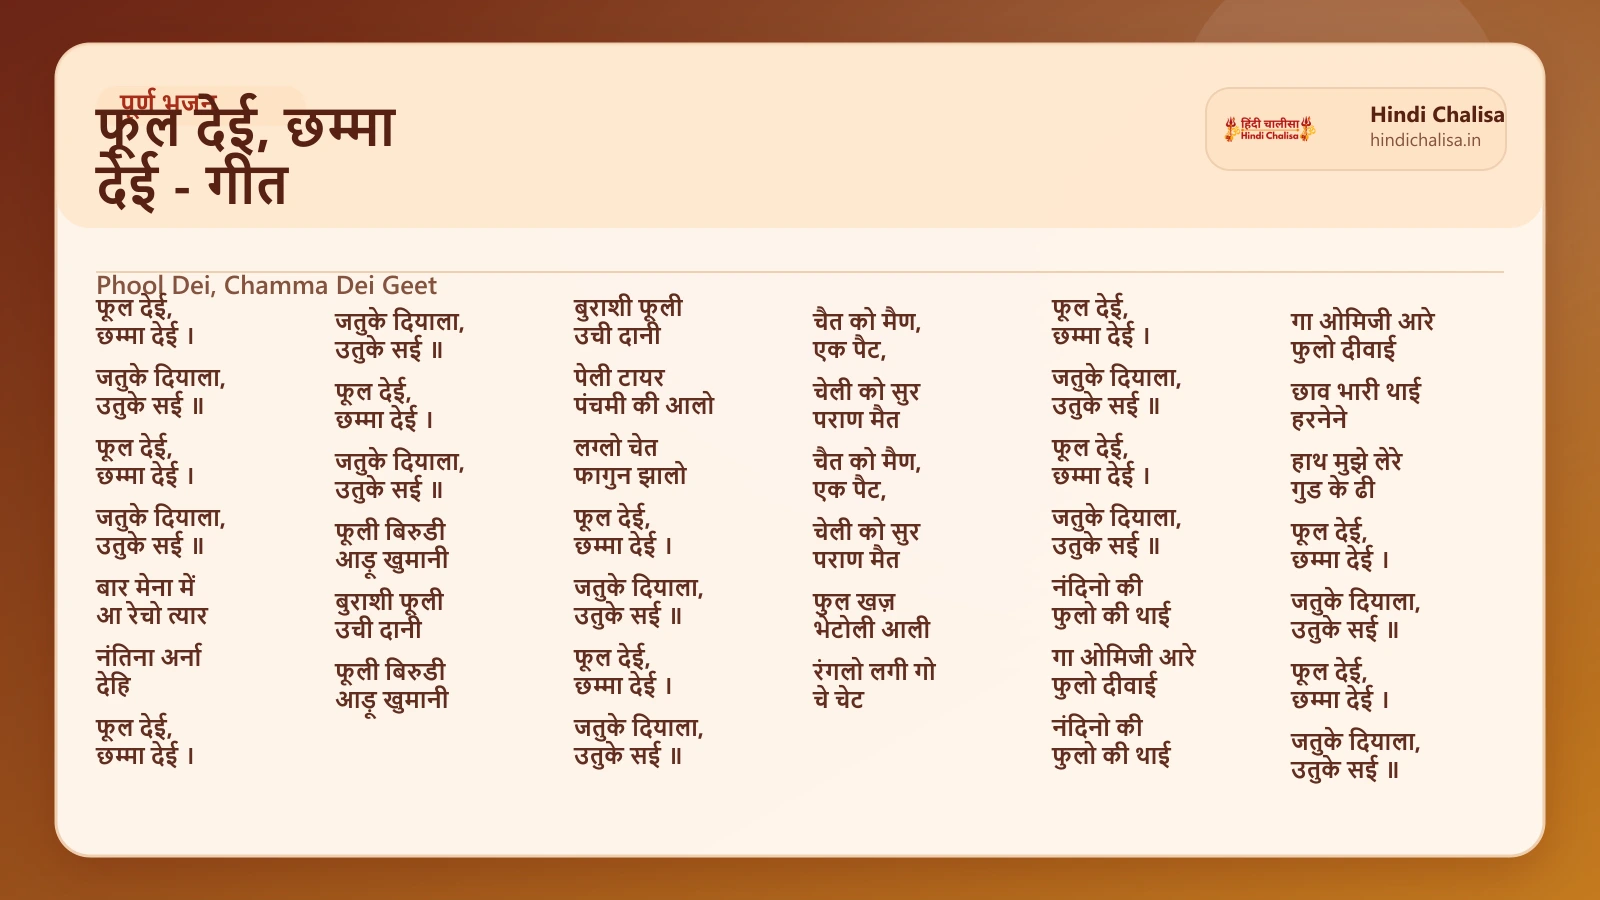 पूर्ण भजन
फूल देई, छम्मा
देई - गीत
हिंदी चालीसा
Hindi Chalisa
Hindi Chalisa
hindichalisa.in
Phool Dei, Chamma Dei Geet
फूल देई,
छम्मा देई ।
जतुके दियाला,
उतुके सई ॥
फूल देई,
छम्मा देई ।
जतुके दियाला,
उतुके सई ॥
बार मेना में
आ रेचो त्यार
नंतिना अर्ना
देहि
फूल देई,
छम्मा देई ।
जतुके दियाला,
उतुके सई ॥
फूल देई,
छम्मा देई ।
जतुके दियाला,
उतुके सई ॥
फूली बिरुडी
आड़ू खुमानी
बुराशी फूली
उची दानी
फूली बिरुडी
आड़ू खुमानी
बुराशी फूली
उची दानी
पेली टायर
पंचमी की आलो
लग्लो चेत
फागुन झालो
फूल देई,
छम्मा देई ।
जतुके दियाला,
उतुके सई ॥
फूल देई,
छम्मा देई ।
जतुके दियाला,
उतुके सई ॥
चैत को मैण,
एक पैट,
चेली को सुर
पराण मैत
चैत को मैण,
एक पैट,
चेली को सुर
पराण मैत
फुल खज़
भेटोली आली
रंगलो लगी गो
चे चेट
फूल देई,
छम्मा देई ।
जतुके दियाला,
उतुके सई ॥
फूल देई,
छम्मा देई ।
जतुके दियाला,
उतुके सई ॥
नंदिनो की
फुलो की थाई
गा ओमिजी आरे
फुलो दीवाई
नंदिनो की
फुलो की थाई
गा ओमिजी आरे
फुलो दीवाई
छाव भारी थाई
हरनेने
हाथ मुझे लेंरे
गुड के ढी
फूल देई,
छम्मा देई ।
जतुके दियाला,
उतुके सई ॥
फूल देई,
छम्मा देई ।
जतुके दियाला,
उतुके सई ॥